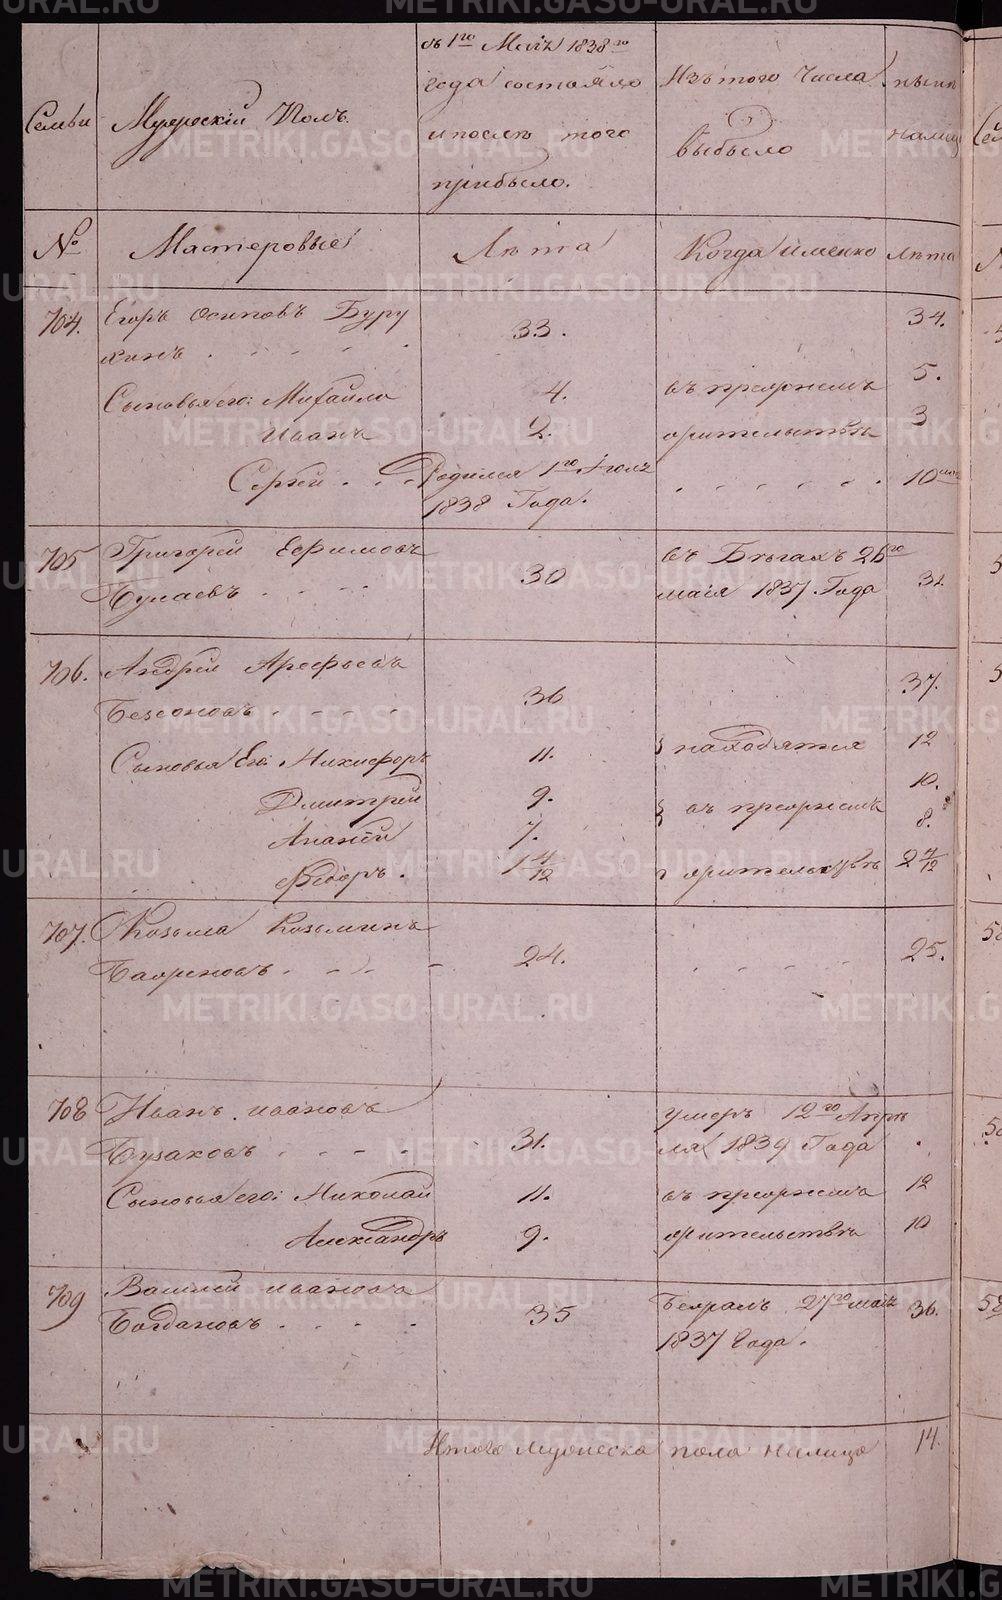 Семьи
Мужескій Полъ.
съ 1го Маія 1838го
года состояло
и послѣ того
прибыло.
Изъ того Числа
выбыло
нынѣ
№
Мастеровые
Лѣта
Когда именно
Лѣта
704.
Егоръ Осиповъ Буру
хинъ
33.
34.
Сыновья его: Михайло
4.
въ прежнемъ
5.
Иванъ
2.
жительствѣ
3
Сергѣй
Родился 1го Іюля
1838 Года.
10
705
Григорей Ефимовъ
Булаевъ
30
въ Бѣгахъ 26го
маія 1837 Года
706.
Андрей Арефьевъ
Безсоновъ
36
37.
Сыновья Его: Никифоръ
11.
находятся
12
Дмитрей
9.
въ прежнемъ
10.
Ананій
7.
8.
Ѳедоръ.
1 4/12
жительствѣ
2 4/12
707.
Козьма Козьминъ
24.
25.
708
Иванъ Ивановъ
31.
умеръ 12го Апрѣ
ля 1839 Года
Сыновья его: Николай
11.
въ прежнемъ
12
Александръ
9.
жительствѣ
10
709
Василей Ивановъ
Богдановъ
35
Бежалъ 27го маія
1837 Года.
36.
Итого мужеска пола на лицо
14.
METRIKI.GASO-URAL.RU